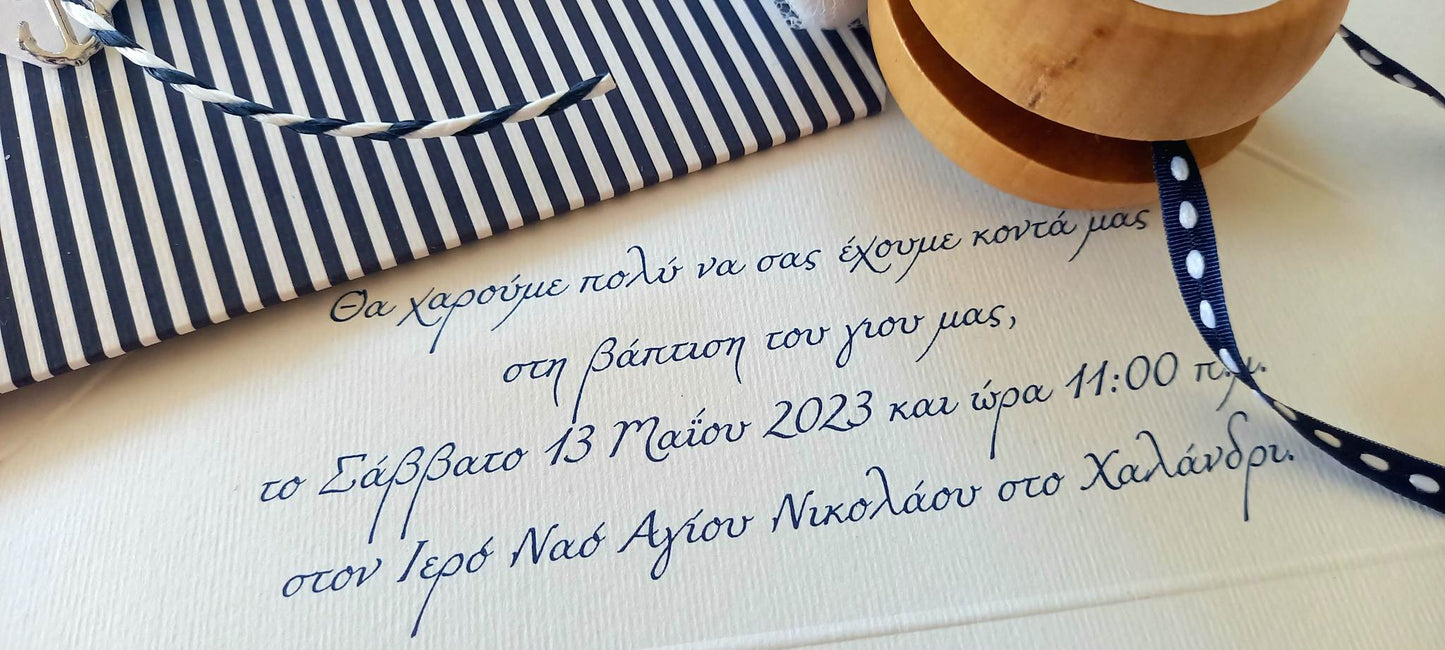 Θα χαρούμε πολύ να σας έχουμε κοντά μας
στη βάπτιση του γιου μας,
το Σάββατο 13 Μαΐου 2023 και ώρα 11:00 π.μ.
στον Ιερό Ναό Αγίου Νικολάου στο Χαλάνδρι.